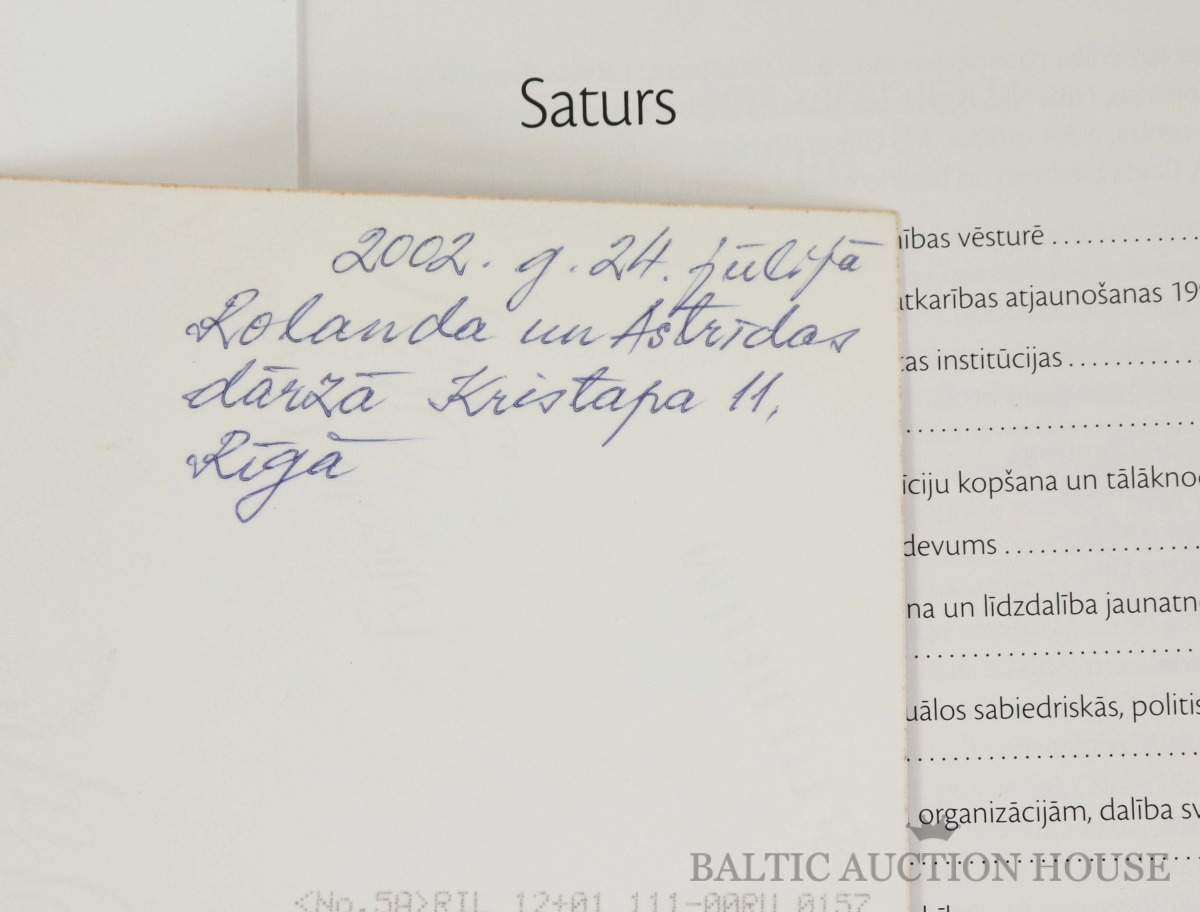 Saturs
2002. g. 24. jūlijā
Rolanda un Astrīdas
dārzā Kristapa 11,
Rīgā
ības vēsturē
atkarības atjaunošanas 19
as institūcijas
īciju kopšana un tālākno
devums
na un līdzdalība jaunatn
uālos sabiedriskās, politis
organizācijām, dalība sv
BALTIC AUCTION HOUSE
<No.5A>RIL 12+01 111-00RU 0157